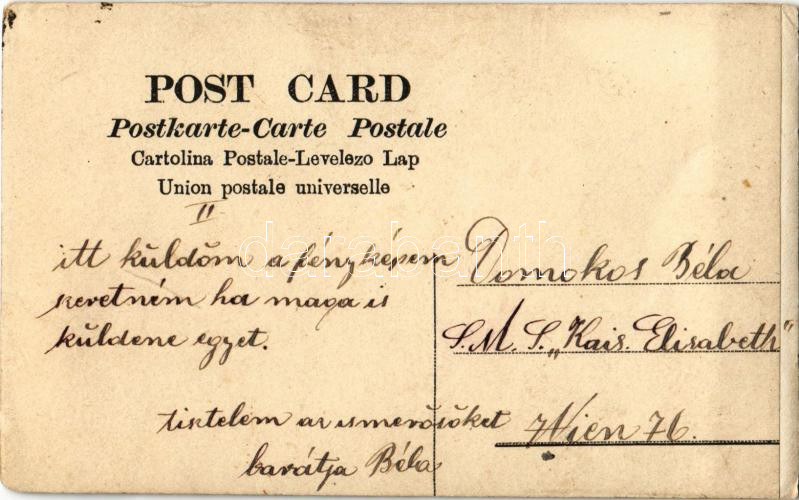 POST CARD
Postkarte-Carte Postale
Cartolina Postale-Levelezo Lap
Union postale universelle
II
itt küldöm a fényképem
szeretném ha maga is
küldene egyet.
tisztelem az ismerősöket
barátja Béla
Domokos Béla
S.M.S. „Kais. Elisabeth"
Wien 76.
darabanth